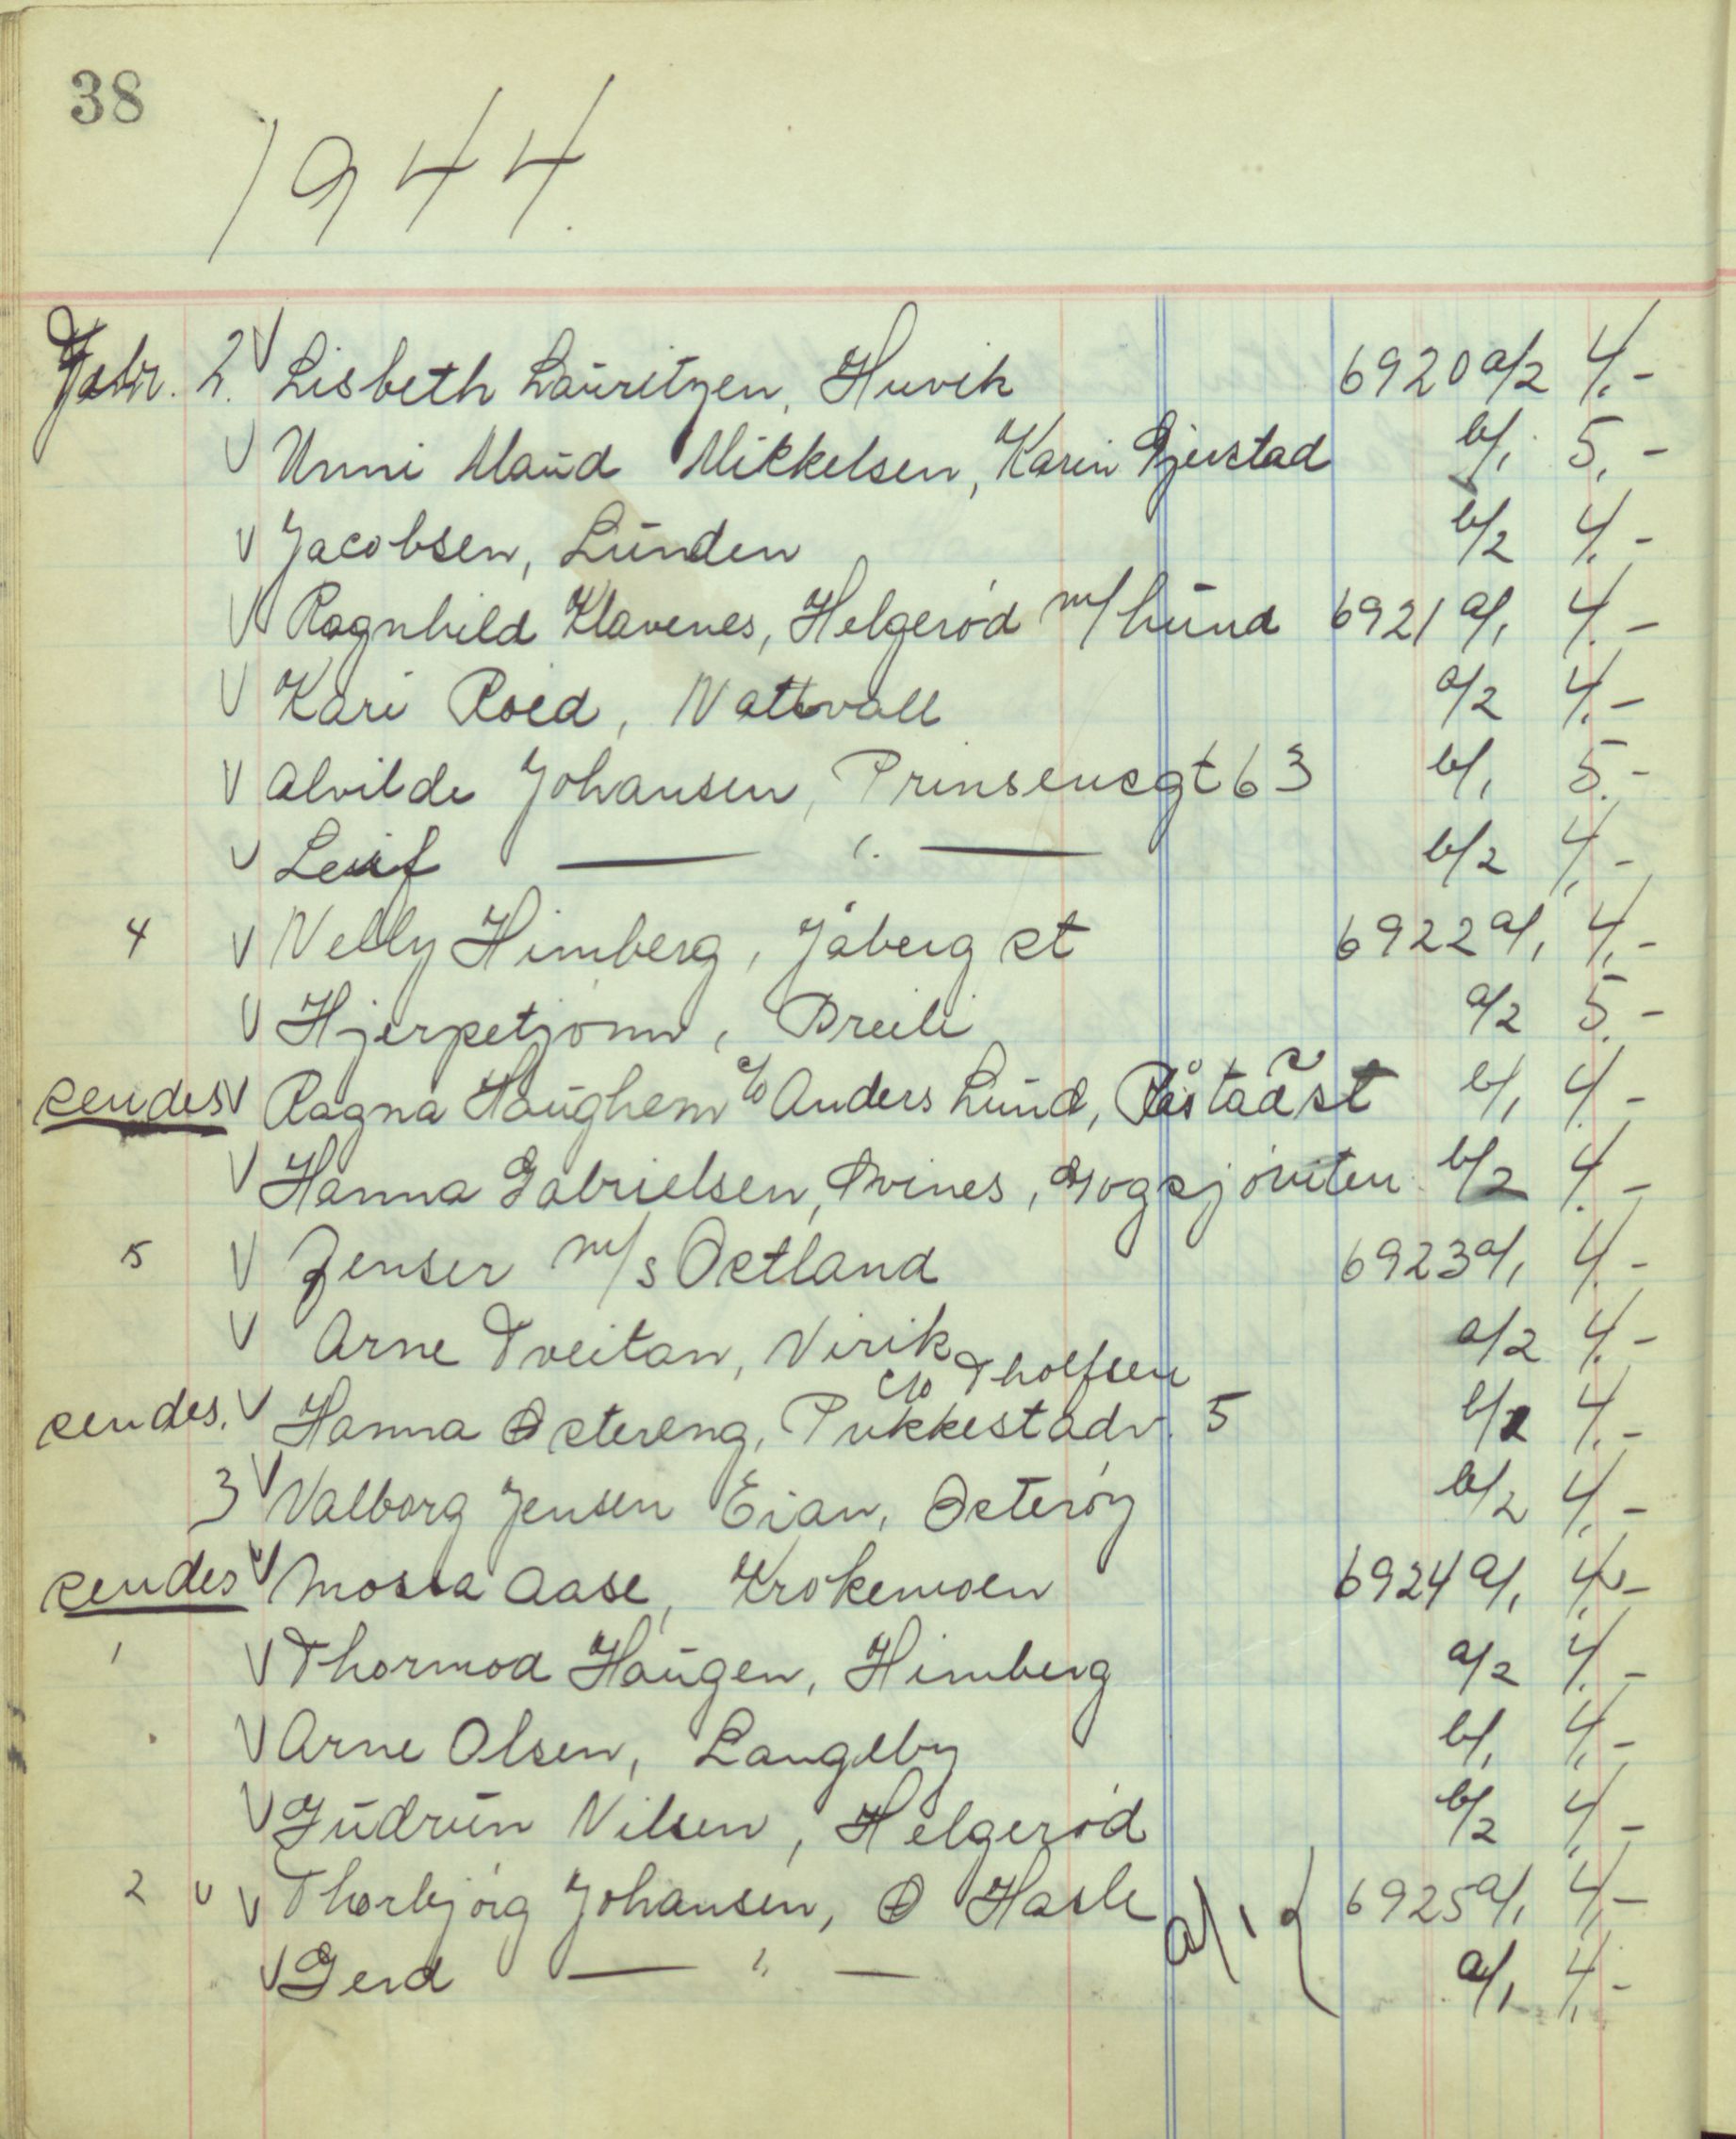 38
1944.
Febr. 2. V Lisbeth Lauritzen, Huvik 6920 a/2 4.-
V Unni Maud Mikkelsen, Karin Gjerstad b/1 5,-
V Jacobsen, Lunden b/2 4.-
V Ragnhild Klavenes, Helgerød m/hund 6921 a/1 4.-
V Kari Roed, Nattvall a/2 4.-
V Alvilde Johansen, Prinsensgt 63 b/1 5.-
V Leif — " — b/2 4,-
4 V Nelly Himberg, Jåberg st 6922 a/1 4,-
V Hjerpetjønn, Breili a/2 5.-
sendes V Ragna Haughem c/o Anders Lund, Råstad st b/1 4.-
V Hanna Gabrielsen, Svines, Gogsjø b/2 4.-
5 V Jenser m/s Østland 6923 a/1 4.-
V Arne Tveitan, Virik a/2 4.-
c/o Tholfsen
sendes. V Hanna Østereng, Pukkestadv. 5 b/1 4.-
3 V Valborg Jensen Eian, Østerøy b/2 4,-
sendes V Mossa Aase, Krokemoen 6924 a/1 4,-
1 V Thormod Haugen, Himberg a/2 4.-
V Arne Olsen, Langeby b/1 4,-
V Gudrun Nilsen, Helgerød b/2 4,-
2 V V Thorbjørg Johansen, Ø Hasle a/1 { 6925 a/1 4,-
V Gerd — " — a/1 4,-